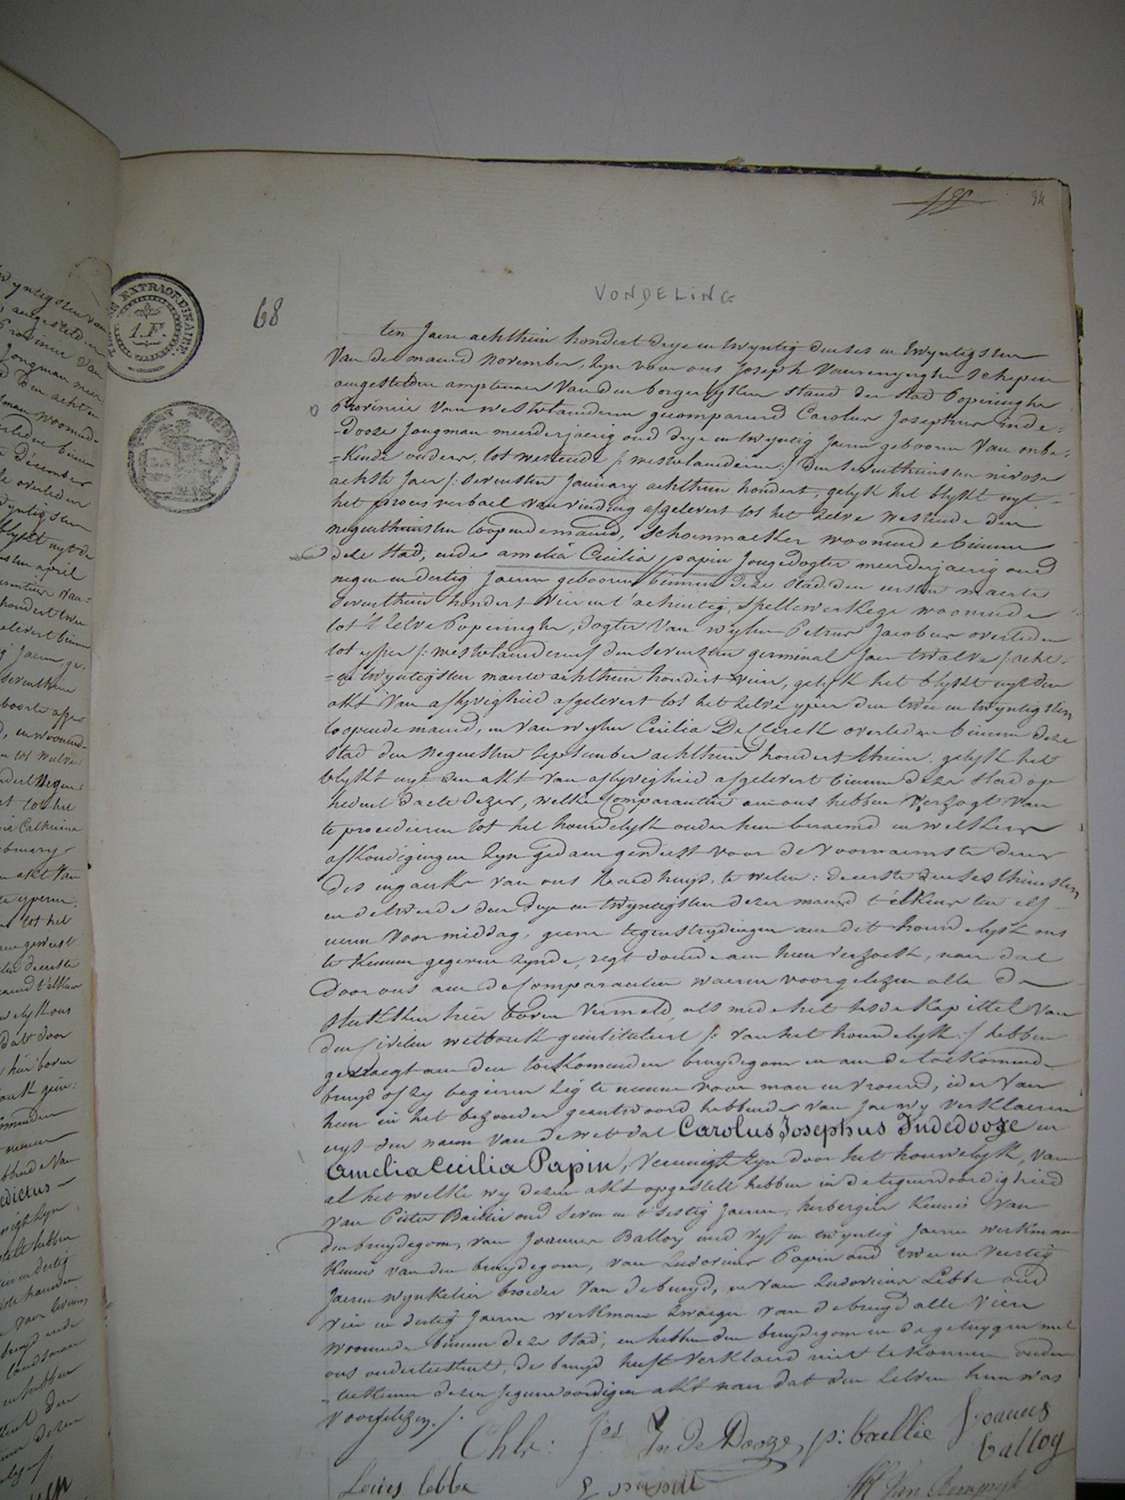 94
EXTRAORDINAIRE
1.F.
68
VONDELING
ten Jaere achthien hondert drye en twyntig den ses en twyntigsten
Van de maend November, zyn voor ons Joseph schepen
aengestelden amptenaer van den borgerlyken stand der stad Poperinghe
Provincie van westvlaenderen gecompareerd Carolus Josephus Inde=
=Dooze Jongman meerderjaerig oud drye en twyntig Jaeren gebooren van onbe=
=kende ouders, tot westende /: westvlaenderen :/ den seventhiensten nivose
achtste Jaer /: sevensten January achthien hondert, gelyk het blykt uyt
het proces verbael van vinding afgelevert tot het zelve westende den
negenthiensten loopende maend, schoenmaeker woonende binnen
deze stad, ende amelia Cecilia papin Jongedogter meerderjaerig oud
negen en dertig Jaeren gebooren binnen deze stad den eersten maerte
seventhien hondert vier en t'achentig, spellewerkege woonende
tot t zelve Poperinghe, dogter van wylen Petrus Jacobus overleden
tot yper /: westvlaenderen :/ den sevensten germinal Jaer twalve /: acht=
=en twyntigsten maerte achthien hondert vier, gelyk het blykt uyt den
akt van aflyvigheid afgelevert tot het zelve yper den twee en twyntigsten
loopende maend, en van wylen Cecilia De Clerck overleden binnen deze
stad den negensten september achthien hondert thien, gelyk het
blykt uyt den akt van aflyvigheid afgelevert binnen deze stad op
heden date dezer, welke Comparanten aen ons hebben verzogt van
te procederen tot het houwelyk onder hun beraemd en welkers
afkondigingen zyn gedaen geweest voor de voornaemste deure
des ingancks van ons Raedhuys, te weten: de eerste den sesthiensten
en de tweede den drye en twyntigsten dezer maend t'elkens ten elf
ueren voor middag, geene tegenstrydingen aen dit houwelyk ons
te kennen gegeven zynde, regt doende aen hun verzoek, naer dat
door ons aen de Comparanten waeren voorgelezen alle de
stukken hier boven vermeld als mede het sesde Kapittel van
den Civilen wetboek geintituleert /: van het houwelyk :/ hebben
gevraegt aen den toekomenden bruydegom en aen de toekomende
bruyd of zy begeeren zig te nemen voor man en vrouw, ider van
hun in het bezonder geantwoord hebbende van Jae wy verklaeren
uyt den naem van de wet dat Carolus Josephus Indedooze en
Amelia Cecilia Papin, vereenigt zyn door het houwelyk, van
al het welke wy dezen akt opgestelt hebben in de tegenwoordigheid
van Pieter Baillie oud seven en t'sestig Jaeren, herbergier kennis van
den bruydegom, van Joannes Balloy oud vyf en twyntig Jaeren werkman
kennis van den bruydegom, van Ludovicus Papin oud twee en veertig
Jaeren wynkelier broeder van de bruyd, en van Ludovicus Lebbe oud
vier en dertig Jaeren werkman zwager van de bruyd alle vier
woonende binnen deze stad, en hebben den bruydegom en de getuygen met
ons onderteekent, de bruyd heeft verklaerd niet te konnen onder=
=teekenen dezen tegenwoordigen akt naer dat den zelven hun was
voorgelezen ./.
Chle: Jos In De Dooze, p: baellie Joannes
balloy
Louis lebbe